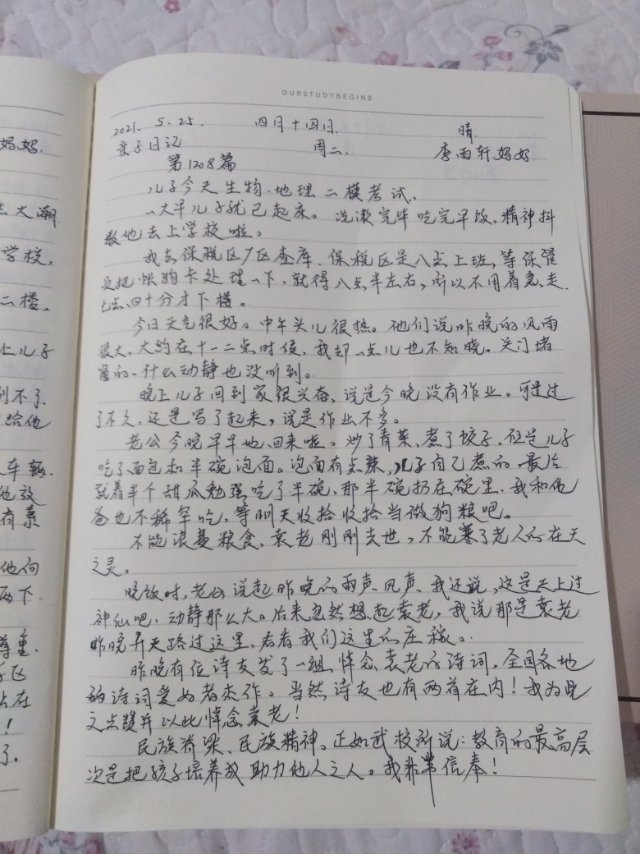 OURSTUDYBEGINS
2021. 5.25. 四月十四日 晴.
亲子日记 周二. 李雨轩妈妈
第1208篇
儿子今天生物.地理二模考试.
一大早儿子就已起床。洗漱完毕吃完早饭,精神抖
擞地去上学校啦。
我去保税区厂区查库.保税区是八点上班,等保管
处理一下,就得八点半左右,所以不用着急走.
七点四十分才下楼。
今日天气很好。中午头儿很热。他们说昨晚的风雨
很大,大约在十一二点时候,我却一点儿也不知晓。关门堵
什么动静也没听到。
晚上儿子回到家很兴奋,说是今晚没有作业。可过
了不久,还是写了起来,说是作业不多。
老公今晚早早地回来啦。炒了青菜,煮了饺子,但是儿子
吃了面包和半碗泡面。泡面有点辣,儿子自己煮的.最后
就着半个甜瓜勉强吃了半碗,那半碗扔在碗里.我和他
爸也不稀罕吃,等明天收拾收拾当做狗粮吧。
不能浪费粮食,袁老刚刚去世,不能寒了老人的在天
之灵。
晚饭时,老公说起昨晚的雨声、风声、我还说,这是天上过
神仙吧,动静那么大。后来忽然想起袁老,我说那是袁老
昨晚升天路过这里,看看我们这里的庄稼。.
昨晚有位诗友发了一组悼念袁老的诗词,全国各地
的诗词爱好者杰作。当然诗友也有两首在内!我为此
文点赞并以此悼念袁老!
民族脊梁、民族精神。正如武校所说:教育的最高层
次是把孩子培养成助力他人之人。我非常信奉!
妈妈.
大潮
学校,
二楼,
上儿子
到不了
给他
车辆
他放
有素
他向
两下
尊重.
飞
点在
!
了.